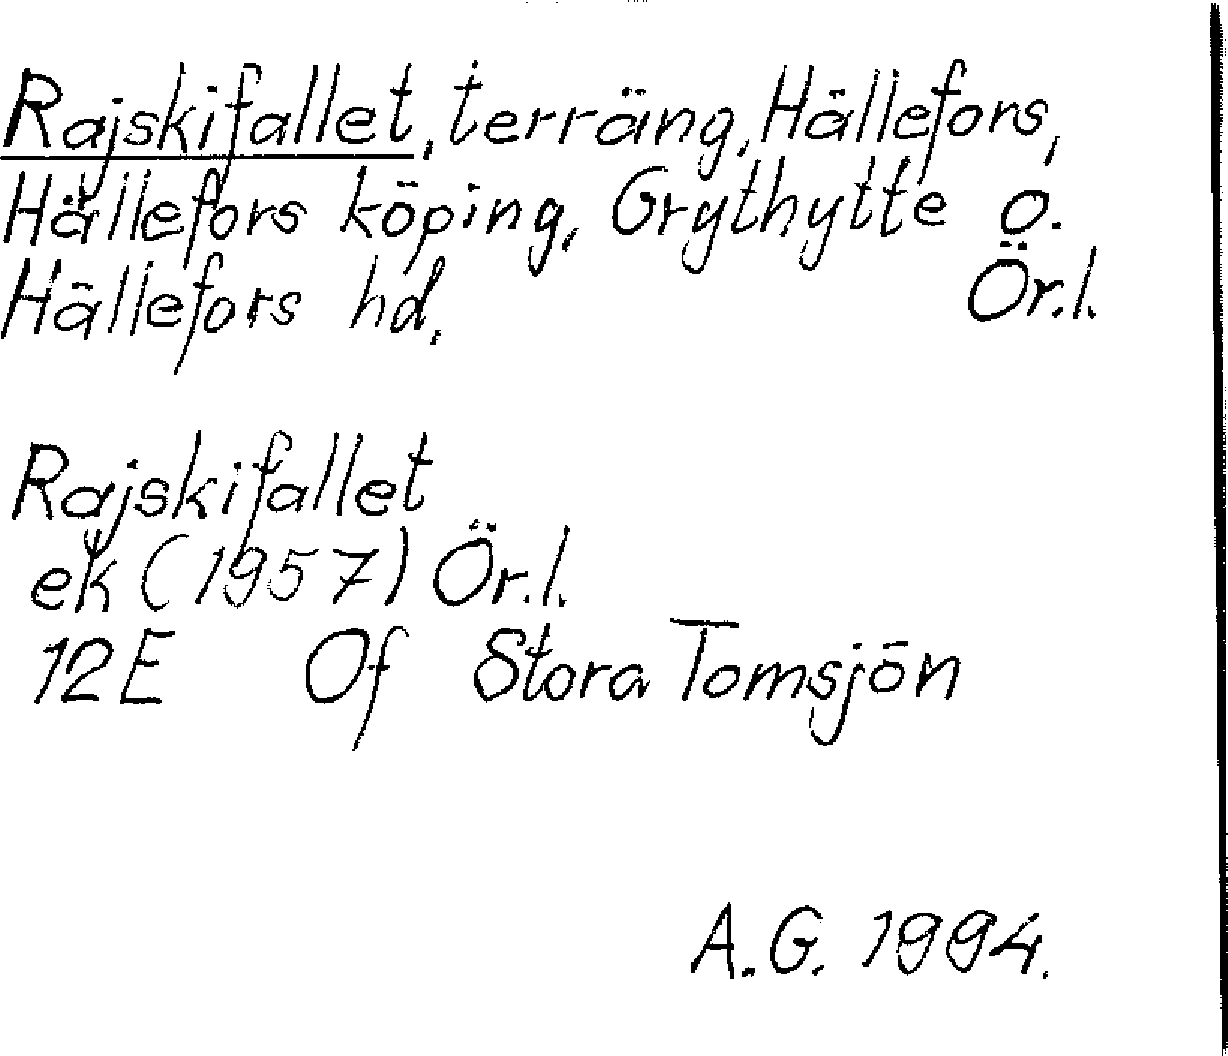 Rajskifallet, terräng, Hällefors,
Hällefors köping, Grythytte o.
Hällefors hd. Ör.l.
Rajskifallet
ek (1957) Ör.l.
12E Of Stora Tomsjön
A.G. 1994.